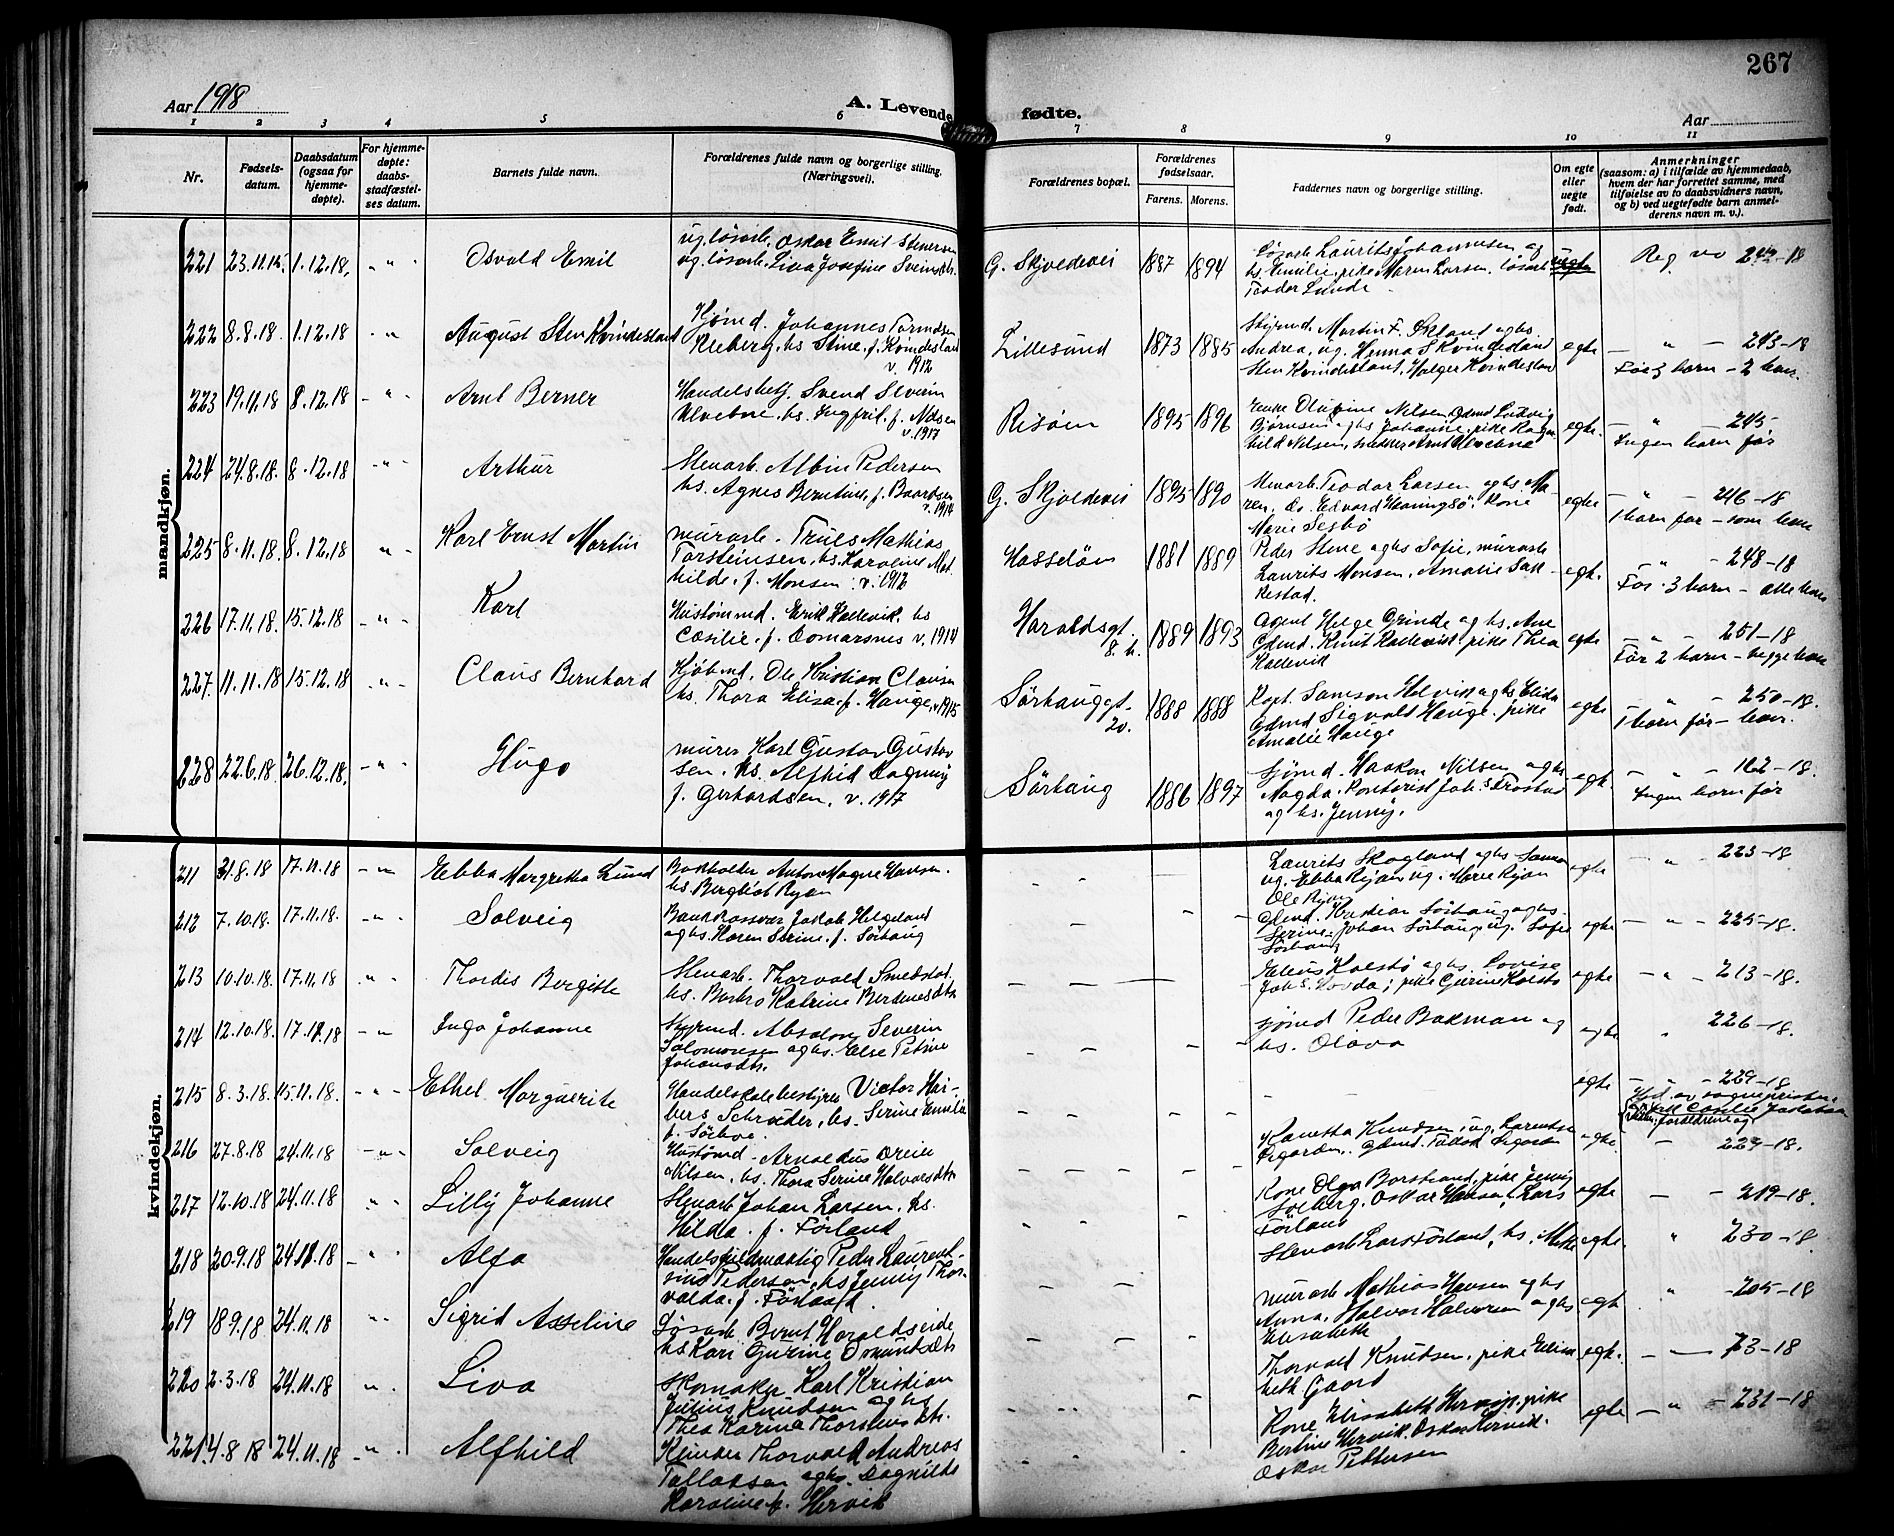 267
Aar 1918
A. Levende fødte.
Aar
1 2 3 4 5 6 7 8 9 10 11
Nr.
Fødsels-
datum.
Daabsdatum
(ogsaa for
hjemme-
døpte).
For hjemme-
døpte:
daabs-
stadfæstel-
ses datum.
Barnets fulde navn.
Forældrenes fulde navn og borgerlige stilling.
(Næringsvei).
Forældrenes bopæl.
Forældrenes
fødselsaar.
Farens. Morens.
Faddernes navn og borgerlige stilling.
Om egte
eller
uegte
født.
Anmerkninger
(saasom: a) i tilfælde av hjemmedaab,
hvem der har forrettet samme, med
tilføielse av to daabsvidners navn,
og b) ved uegtefødte barn anmel-
derens navn m. v.).
mandkjøn.
221 23.11.18. 1.12.18. Osvald Emil
ug. løsarb. Oskar Emil Stenersen
ug. løsarb. Liva Josefine
G. Skjoldevei 1887 1894
Løsarb. Laurits Johannesen og
hs. Emilie, pike Maren Larsen, løsarb.
Teodor Lunde
uegte
Reg. no 242-18
222 8.8.18 1.12.18 August Sten Kvindesland
Sjømd. Johannes Tormodsen
hs. Stine f. Kvindesland
v. 1912
Lillesund 1873 1885
Styrmd. Martin F. Økland og hs.
Andrea, ug. Henna S Kvindesland
Sten Kvindesland, Holger Kvindesland
egte
243-18
Før 3 barn - 2 lever.
223 19.11.18 8.12.18 Arnt Berner
Handelsbetj. Svend Severin
Alvebne, hs. Ingfrid f. Nilsen
v. 1917
Risøen 1895 1896
Enke Olufine Nilsen, Gdmd Ludvig
Bjørnsen og hs Johanne, pike Ragn
hild Nilsen, snekker Arnt Alvebne
egte.
245
Ingen barn før
224 24.8.18. 8.12.18 Arthur
Stenarb. Albin Pedersen
hs. Agnes Berntine f. Baardsen
v. 1914
G. Skjoldevei 1895 1890
Stenarb. Teodor Larsen og hs. Ma-
ren, Do. Edvard Hemingsø, kone
Marie Sesbø
egte
246-18
1 barn før - som lever
225 8.11.18. 8.12.18 Karl Ernst Martin
murarb. Truls Mathias
Torsteinsen, hs. Karoline Mat
hilde f. Monsen v. 1912
Hasseløen 1881 1889
Peder Stene og hs Sofie, murarb.
Laurits Monsen, Amalie Sak-
kestad.
egte.
248-18
Før 3 barn - alle lever
226 17.11.18. 15.12.18 Karl
Hustømmd. Erik Kallevik, hs
Cæcilie f. Gomarsnes v. 1914
Haraldsgt. 8. b. 1889 1893
Agent Helge Grinde og hs. Ane
Gdmd. Knut Kallevik, pike Thea
Kallevik
egte
251-18
Før 2 barn - begge lever
227. 11.11.18 15.12.18 Claus Bernhard
Kjøbmd. Ole Kristian Clausen
hs. Thora Elisa f. Hauge, v. 1915
Sørhauggt. 20. 1888 1888
Kapt. Samson Helvik og hs Elida
Gdmd Sigvald Hauge, pike
Amalie Hauge
egte
250-18.
1 barn før - lever.
228 22.6.18. 26.12.18. Hugo
murer Karl Gustav Gustav
sen. hs. Alfhild Dagmny
f. Gerhardsen, v. 1917
Sørhaug 1886 1897
Sjømd. Haakon Nilsen og hs
Magda, Kontorist Joh's Frostad
og hs. Jenny.
egte.
162-18.
Ingen barn før
kvindekjøn.
211 31.8.18 17.11.18 Ebba Margretha Lund
Bokholder Anton Magne Hansen.
hs. Bergliot Ryan
Laurits Skogland og hs
ug. Ebba Ryan, ug. Marie Ryan
Ole Ryan
egte
223-18
212 7.10.18. 17.11.18. Solveig
Bankkasserer Jakob Helgeland
og hs. Karen Serine f. Sørhaug
Gdmd. Kristian Sørhaug og hs.
Serine. Johan Sørhaug, ug. Sofie
Sørhaug
egte
225-18.
213 10.10.18. 17.11.18 Thordis Bergitte
Stenarb. Thorvald Smedstad.
hs. Barbro Katrine Berdinesdtr
Elius Kolstø og hs. Lovise
Joh's. Hovda; pike Gurine Kolstø
egte
213-18.
214 12.10.18. 17.11.18 Inga Johanne
Styrmd. Absalon Severin
Salomonsen og hs. Else Petrine
Johansdtr.
Sjømd Peder Bakman og
hs. Olava
egte
226-18.
215 8.3.18 15.11.18. Ethel Marguerite
Handelskolebestyrer Victor Har-
bers Schrøder, hs. Serine Emilie
egte
229-18
Hjd. av sognepristen.
Cæcilie Jakobsen
forældrene og
216 27.8.18 24.11.18 Solveig
Hustømmd. Arnoldus Dreier
Nilsen, hs. Thora Serine Halvorsdtr.
Kanetta Knudsen, ug. Laurentse
Ørgarden, Gdmd.
egte
224-18.
217 12.10.18 24.11.18 Lilly Johanne
Stenarb Johan Larsen, hs.
Hilda f. Førland
Kone Olga Borstrand, pike Jenny
Solberg, Oskar Hansen, Lars
Førland
egte
219-18.
218 20.9.18 24.11.18 Alfa
Handelsfuldmægtig Peder Laurent-
sius Pedersen, hs Jenny Thor-
valda f. Førland.
Stenarb Lars Førland, hs. Mette
egte.
230-18.
219 18.9.18 24.11.18 Sigrid Asseline
Løsarb. Bernt Haraldseide
hs Kari Gurine Omundsdtr
Murarb Mathias Hansen og hs
Anna, Halvor Halvorsen og hs
Elisabeth
egte
205-18
220 2.3.18 24.11.18 Liva
Skomaker Karl Kristian
Julius Knudsen og hs
Thea Karine Thorstensdtr.
Thorvald Knudsen, pike Elisa
beth Gaard
egte.
73-18
221 4.8.18 24.11.18 Alfhild
Thorvald Andreas
Tallaksen og hs. Dagnilde
Karoline f. Hervik
Kone Elisabeth Hervik, pike
Bertine Hervik, Oskar Hervik.
Oskar Pettersen
egte
231-18